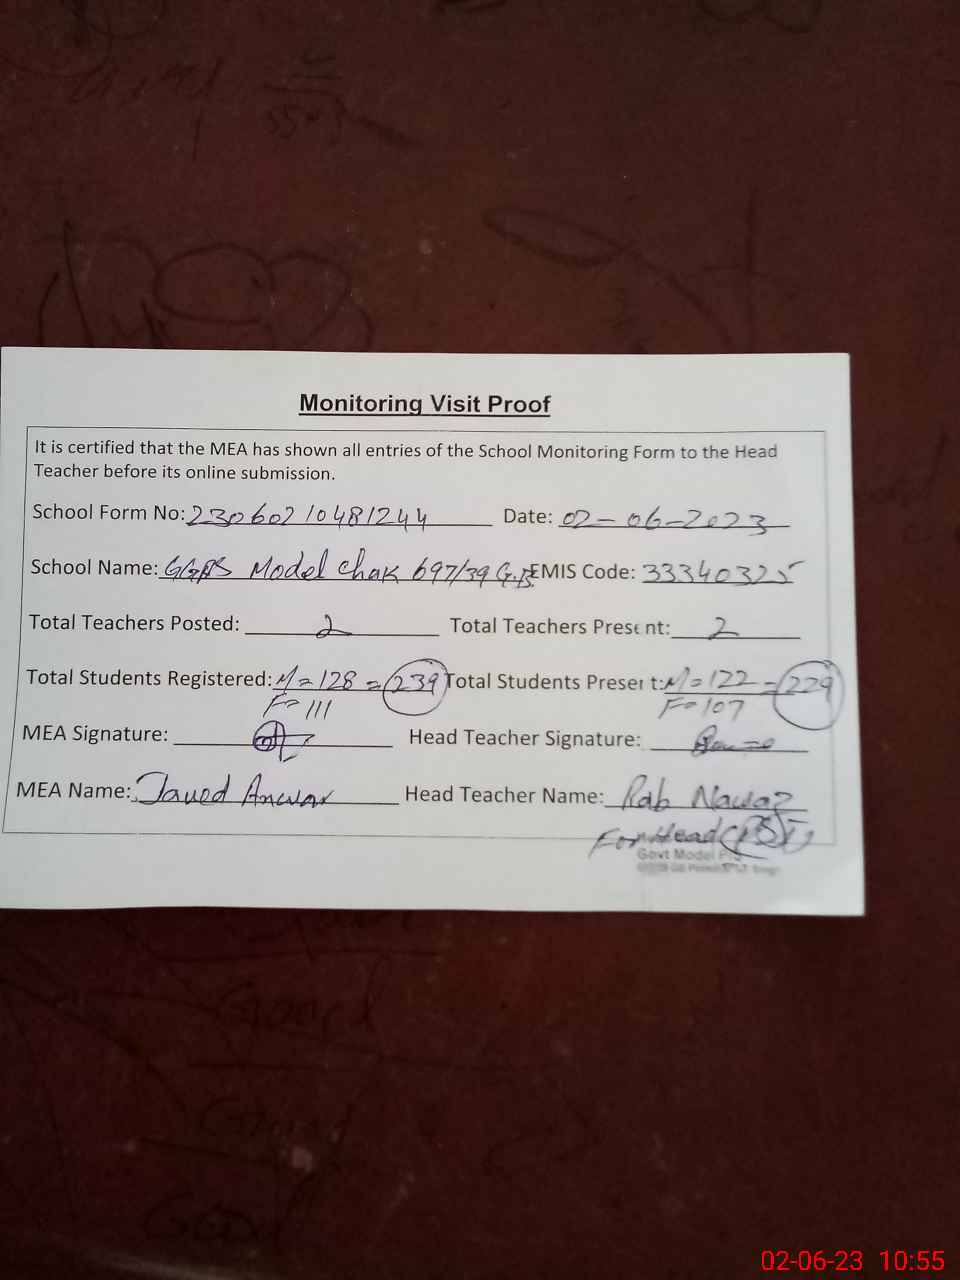 Monitoring Visit Proof
It is certified that the MEA has shown all entries of the School Monitoring Form to the Head
Teacher before its online submission.
School Form No: 23060210481244 Date: 02-06-2023
School Name: GGPS Model Chak 697/39 G.B EMIS Code: 33340325
Total Teachers Posted: 2 Total Teachers Present: 2
Total Students Registered: M=128 = 239 Total Students Present: M=122 = 229
F=111 F=107
MEA Signature: Head Teacher Signature:
MEA Name: Javed Anwar Head Teacher Name: Rab Nawaz
For Head (PST)
Govt Model
Good
Good
02-06-23 10:55